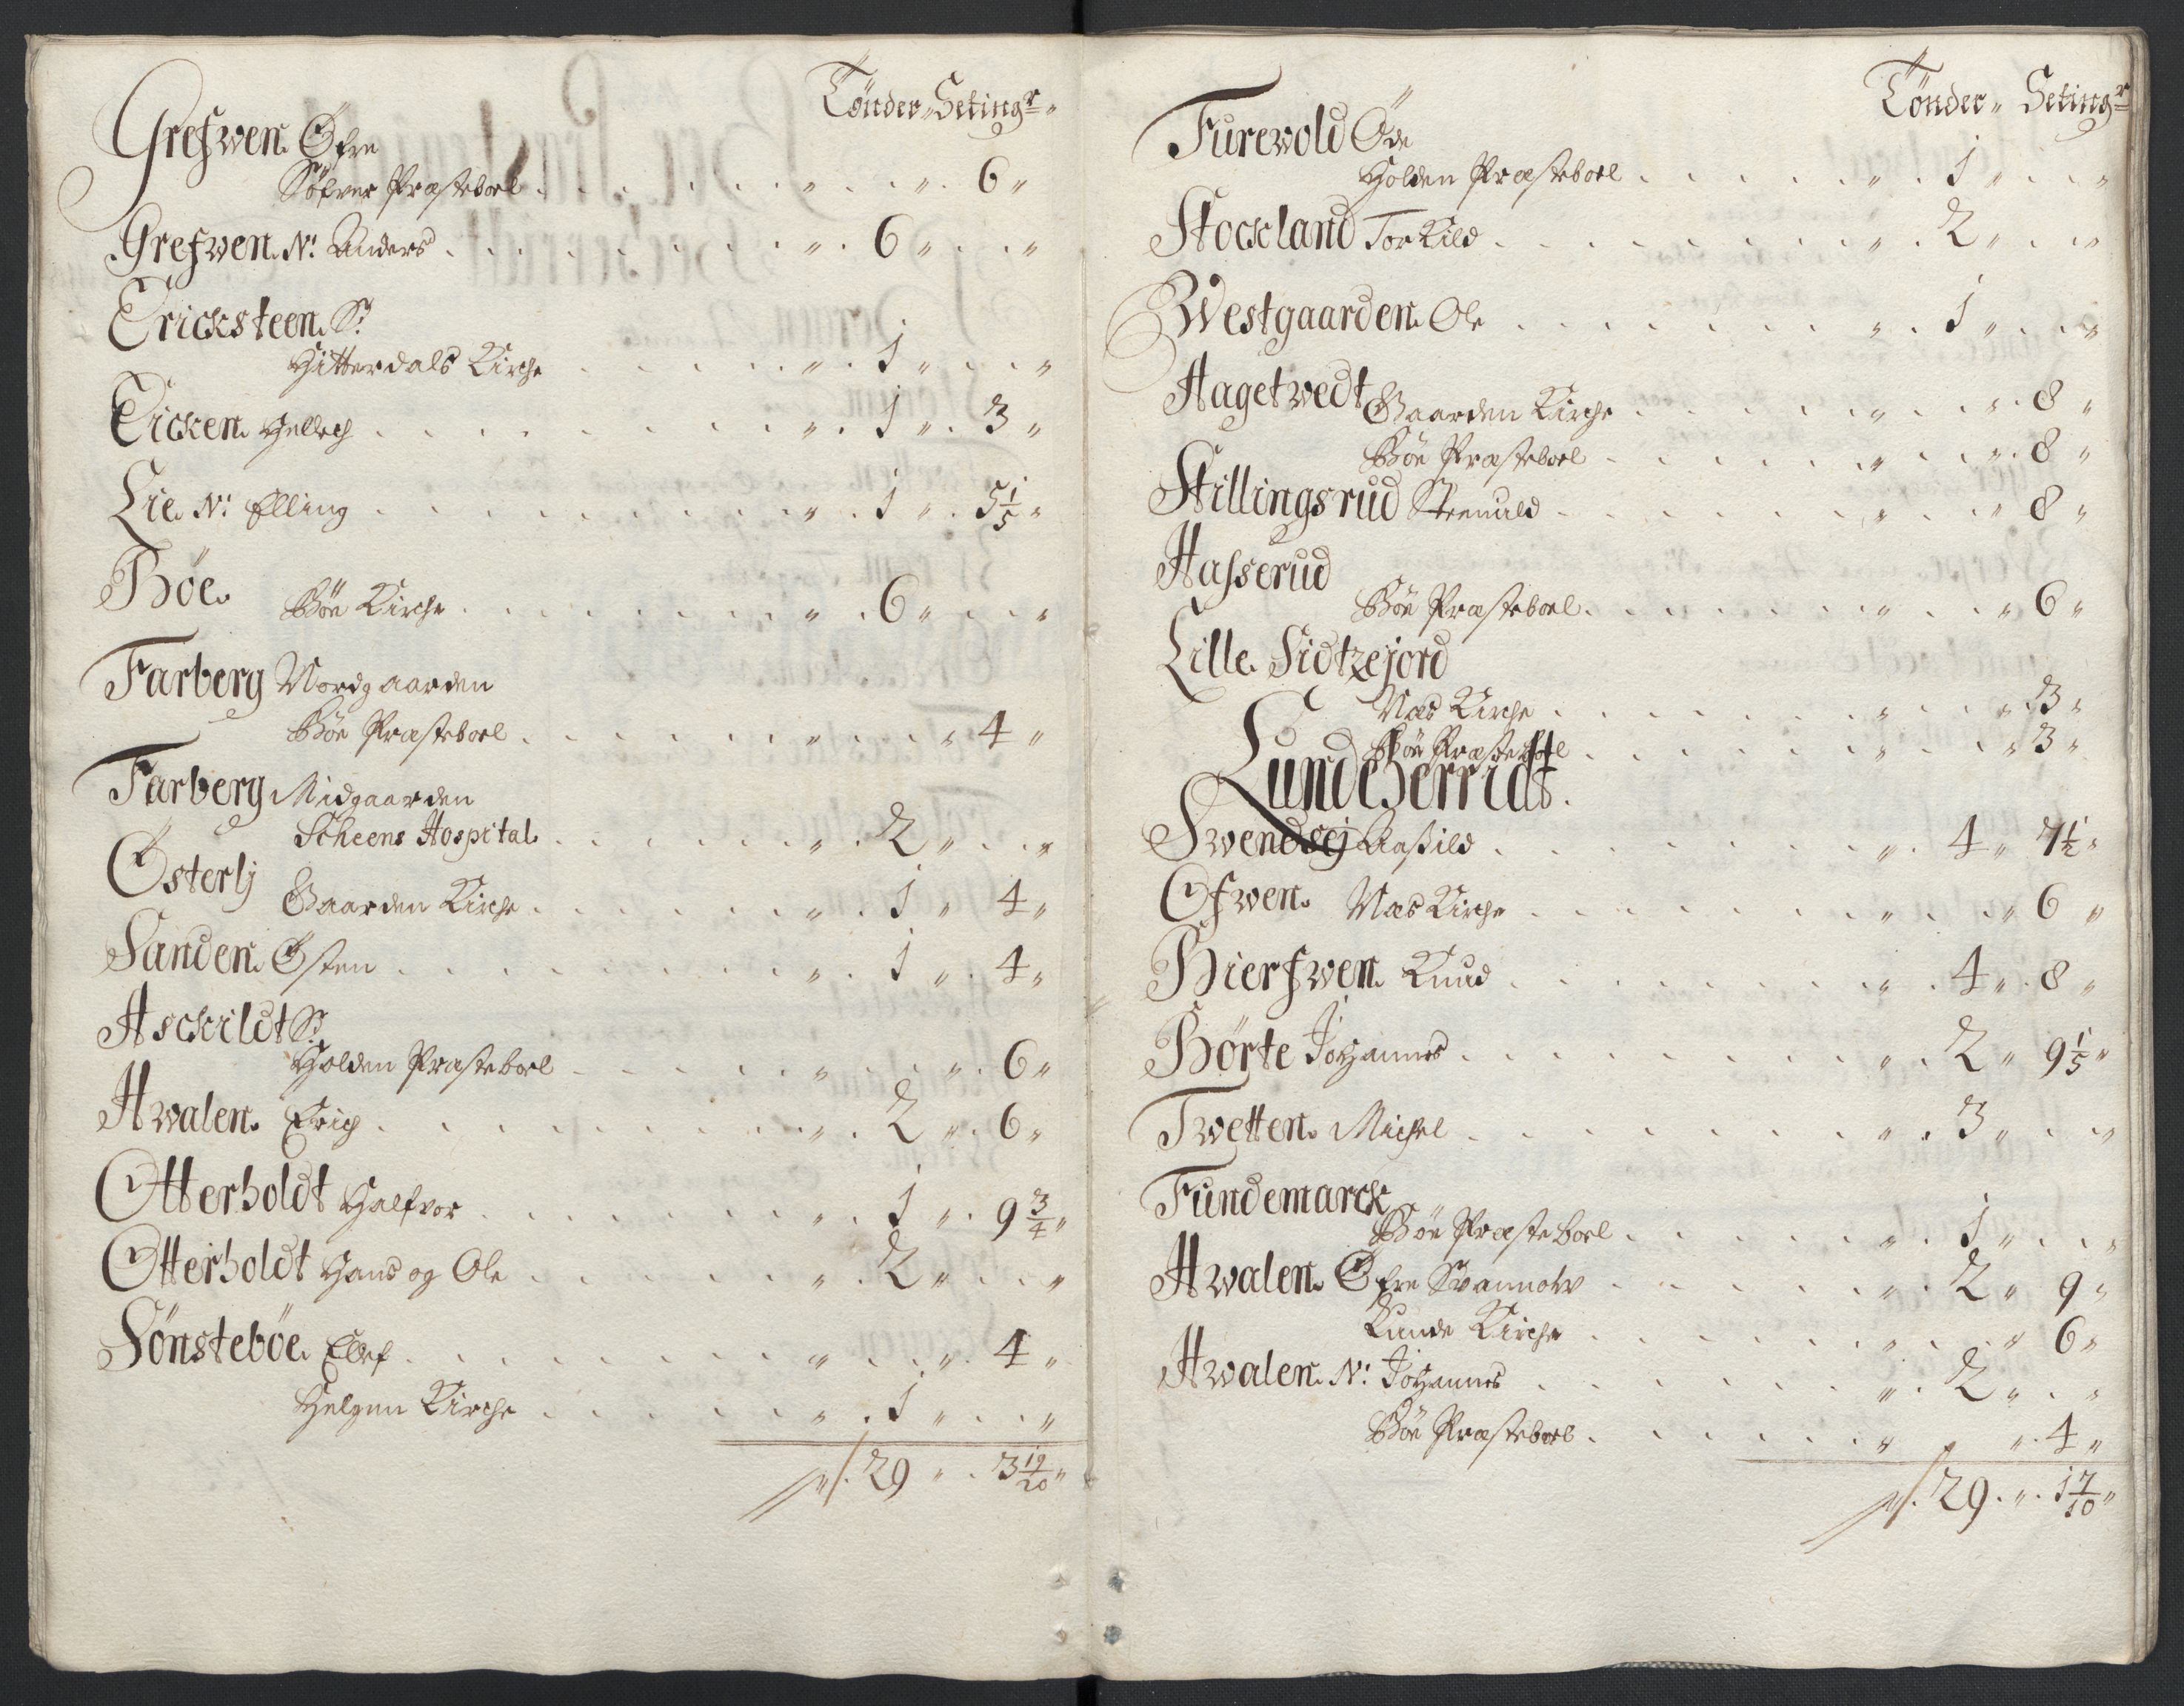 Tönder " Setingr "
Grefwen. Øfre
Söfver Præsteboel . . . . . . " . . . " . 6 "
Grefwen. N: Anders . . . . . . " . 6 " . . "
Ericksteen. S:
Hitterdals Kirche . . . . . " . 1 " . . "
Eicken. Hellech . . . . . . . . " . 1 " . 3 "
Lie. N: Elling . . . . . . . . " . 1 " . 5 1/5 "
Böe.
Böe Kirche . . . . . . . " . 6 " . . "
Farberg Nordgaarden
Böe Præsteboel . . . . . . " . . . " 4 "
Farberg Midgaarden
Scheens Hospital . . . . . . " . 2 " . . "
Østerlj
Gaarden Kirche . . . . . . " . 1 " 4 "
Sanden. Østen . . . . . . . . " . 1 " . 4 "
Asckildt S:
Holden Præsteboel . . . . . " . . . " . 6 "
Hwalen. Erich . . . . . . . . " . 2 " . 6 "
Otterholdt Halfvor . . . . . . . " . 1 " . 9 3/4 "
Otterholdt Hans og Ole . . . . . . " . 2 " . . "
Sönsteböe. Ellef . . . . . . . . " . . . " . 4 "
Helgen Kirche . . . . . . " . 1 " . . "
29 " . 3 19/20 "
Tönder " Setingr
Furewold Øde
Holden Præsteboel . . . . . " . 1 " . . "
Stockland Torkild . . . . . . . . " . 2 " . . "
Westgaarden. Ole . . . . . . . " . 1 " . . "
Hagetwedt
Gaarden Kirche . . . . . " . . . " . 8 "
Böe Præsteboel . . . . . " . . . " . 8 "
Stillingsrud Steenuld . . . . . . " . . . " 8 "
Hasserud
Böe Præsteboel . . . . . . " . . . " 6 "
Lille. Sidtzejord
Næs Kirche . . . . . . " . . . " . 3 "
Böe Præsteboel . . . . . . " . . . " 3 "
Lundeherridt.
Swendsej Aasild . . . . . . . . " . 4 " 7 1/2 "
Ofwen. Næs Kirche . . . . . . . " . . . " 6 "
Bierfwen. Knud . . . . . . . " . 4 " . 8 "
Börte Johannes . . . . . . . . " . 2 " 9 1/5 "
Twetten. Michel . . . . . . . . " . 3 " . . "
Fundemarck
Böe Præsteboel . . . . . " . 1 " . . "
Hwalen. Øfre Svannow . . . . . . " . 2 " 9 "
Lunde Kirche . . . . . . " . . . " 6 "
Hwalen. N: Johannes . . . . . . . " . 2 " . . "
Böe Præsteboel . . . . . . " . . . " . 4 "
29 . " . 1 7/10 "